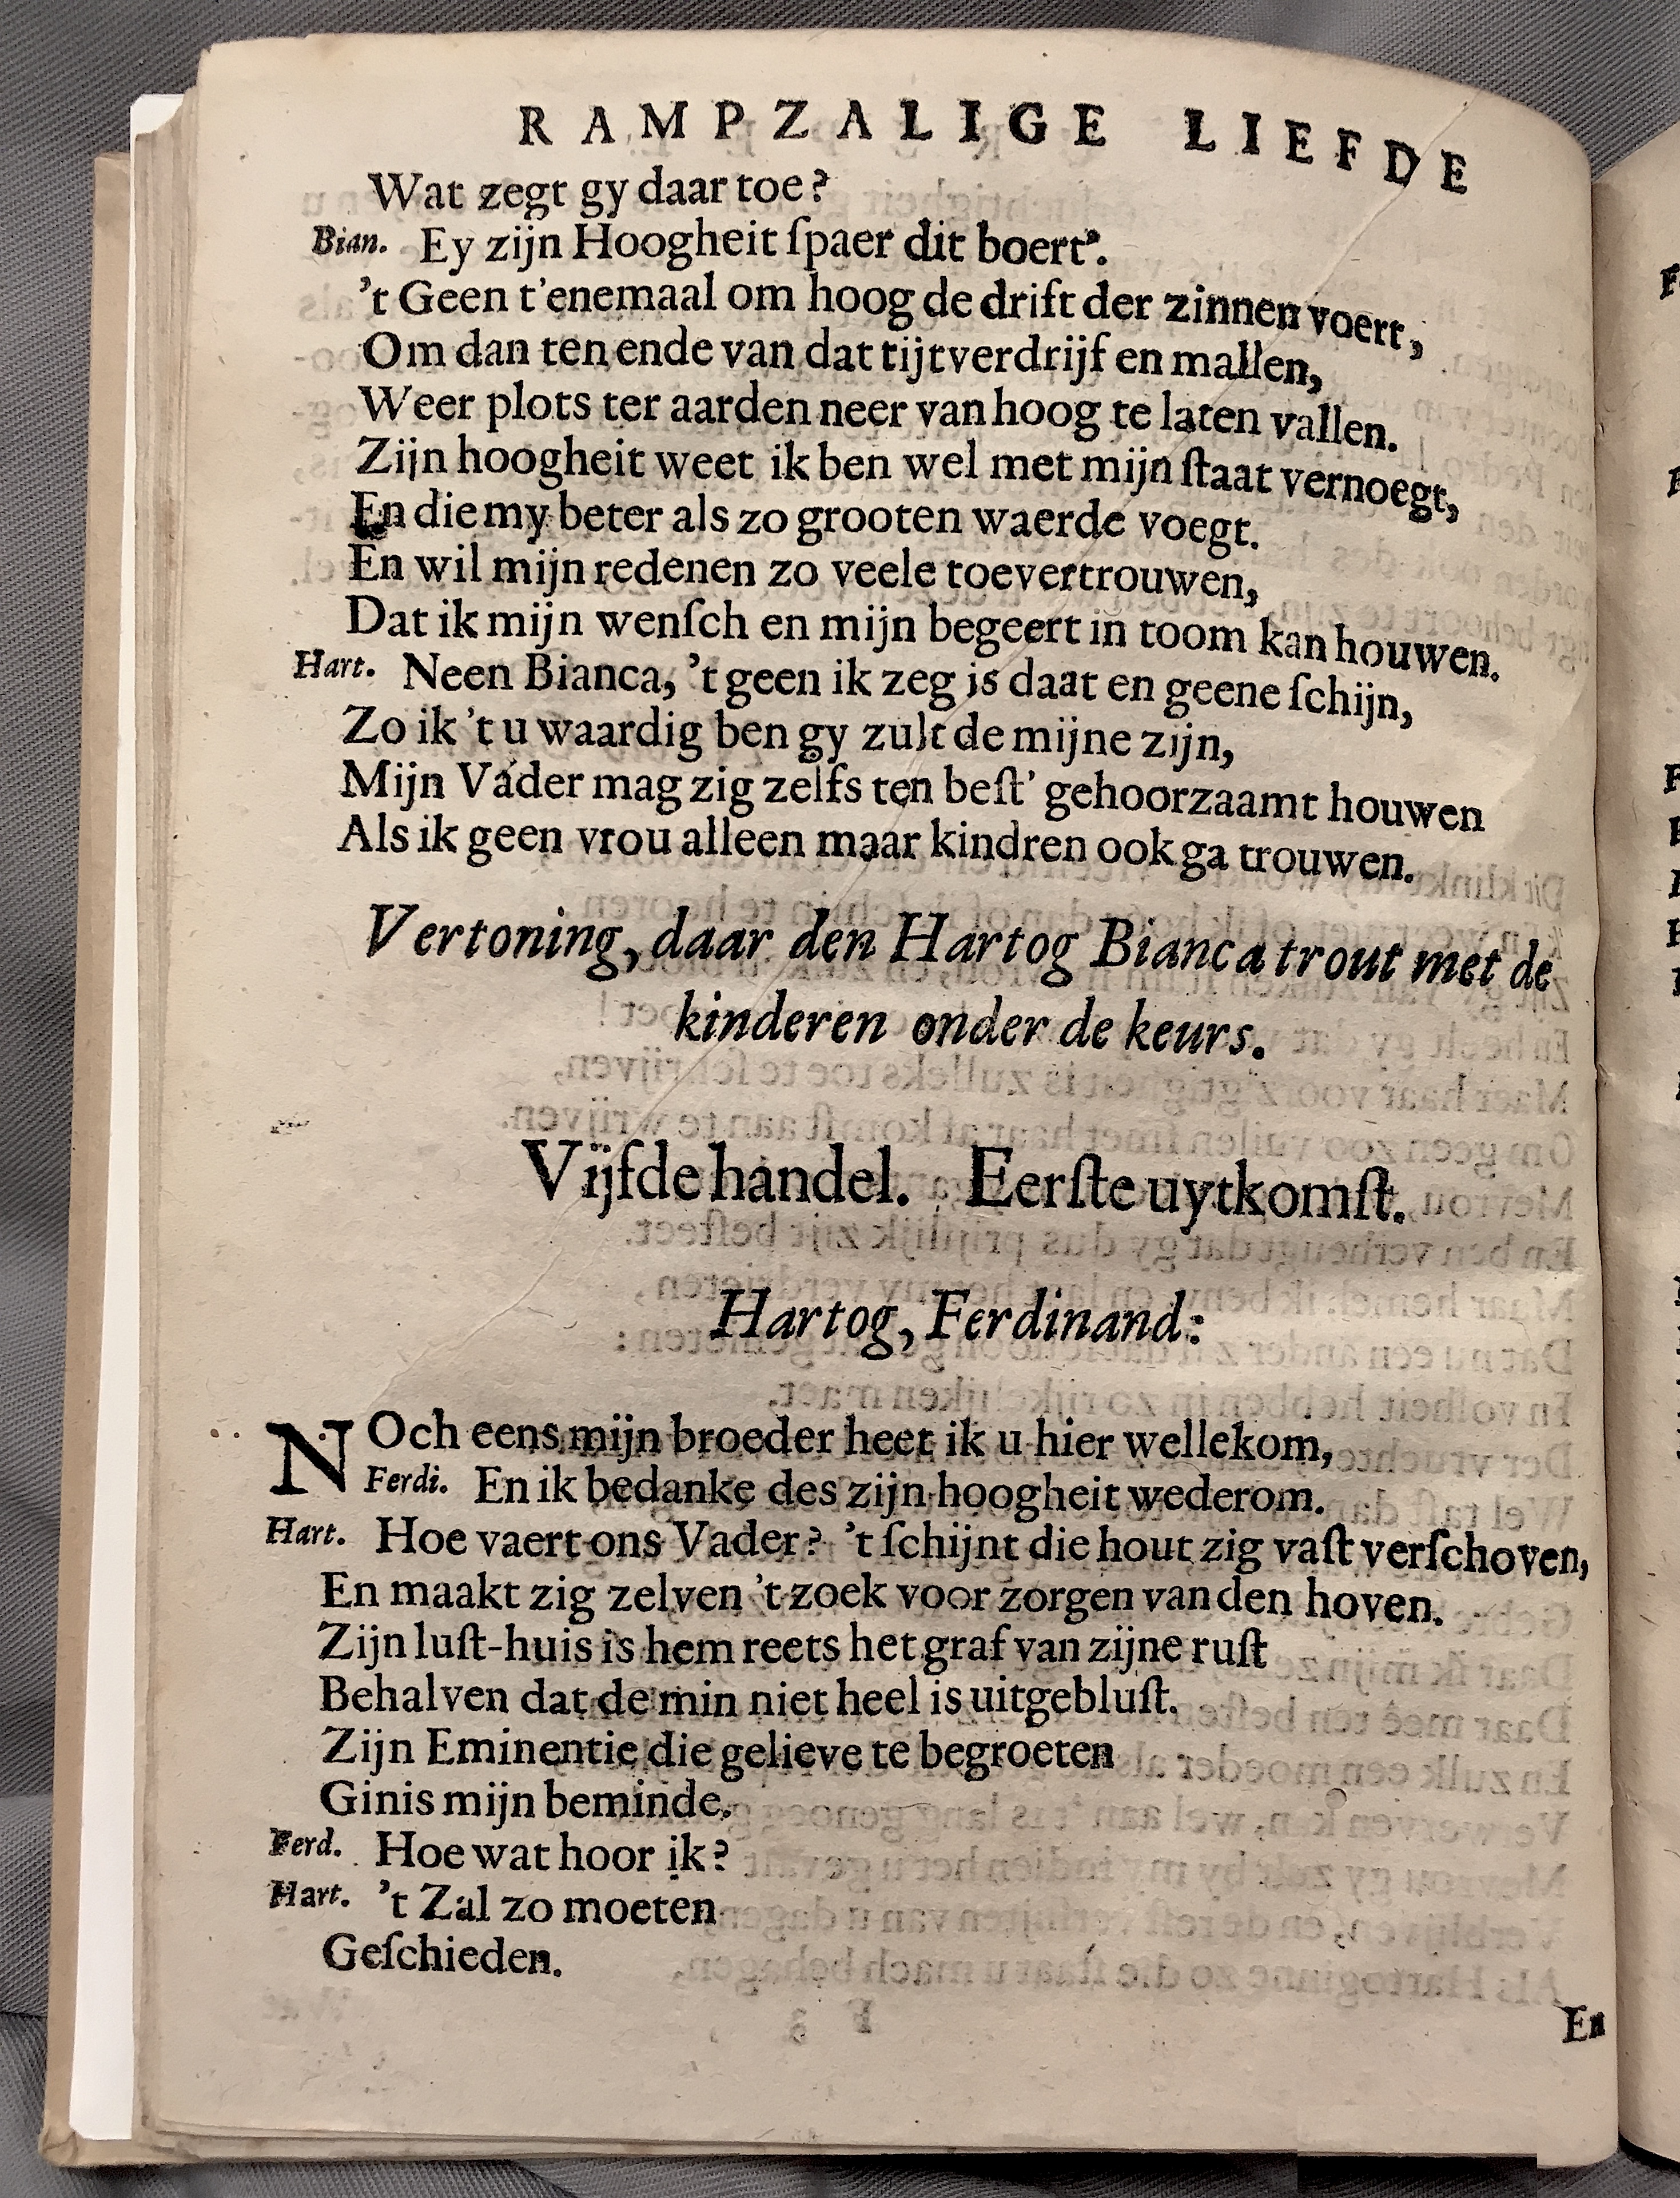 RAMPZALIGE LIEFDE
Wat zegt gy daar toe?
Bian. Ey zijn Hoogheit ſpaer dit boert'.
't Geen t'enemaal om hoog de drift der zinnen voert,
Om dan ten ende van dat tijtverdrijf en mallen,
Weer plots ter aarden neer van hoog te laten vallen.
Zijn hoogheit weet ik ben wel met mijn ſtaat vernoegt,
En die my beter als zo grooten waerde voegt.
En wil mijn redenen zo veele toevertrouwen,
Dat ik mijn wenſch en mijn begeert in toom kan houwen.
Hart. Neen Bianca, 't geen ik zeg is daat en geene ſchijn,
Zo ik 't u waardig ben gy zult de mijne zijn,
Mijn Vader mag zig zelfs ten beſt' gehoorzaamt houwen
Als ik geen vrou alleen maar kindren ook ga trouwen.
Vertoning, daar den Hartog Bianca trout met de
kinderen onder de keurs.
Vijfde handel. Eerſte uytkomſt.
Hartog, Ferdinand:
NOch eens mijn broeder heet ik u hier wellekom,
Ferdi. En ik bedanke des zijn hoogheit wederom.
Hart. Hoe vaert ons Vader? 't ſchijnt die hout zig vaſt verſchoven,
En maakt zig zelven 't zoek voor zorgen van den hoven.
Zijn luſt-huis is hem reets het graf van zijne ruſt
Behalven dat de min niet heel is uitgebluſt.
Zijn Eminentie die gelieve te begroeten
Ginis mijn beminde.
Ferd. Hoe wat hoor ik?
Hart. 't Zal zo moeten
Geſchieden.
En